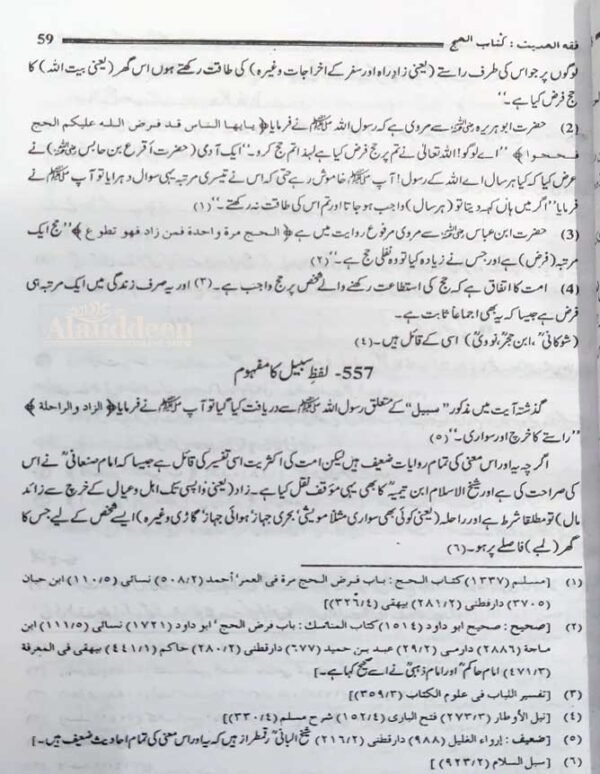 فقه الحديث : كتاب الحج 59
لوگوں پر جو اس کی طرف راستے (یعنی زادِ راہ اور سفر کے اخراجات وغیرہ) کی طاقت رکھتے ہوں اس گھر (یعنی بیت اللہ) کا
حج فرض کیا ہے۔“
(2) حضرت ابو ہریرہ رضی اللہ عنہ سے مروی ہے کہ رسول اللہ ﷺ نے فرمایا ﴿ یایها الناس قد فرض الله علیکم الحج
فحجوا ﴾ ”اے لوگو! اللہ تعالیٰ نے تم پر حج فرض کیا ہے لہذا تم حج کرو۔“ ایک آدمی (حضرت اقرع بن حابس رضی اللہ عنہ) نے
عرض کیا کہ کیا ہر سال اے اللہ کے رسول! آپ ﷺ خاموش رہے حتی کہ اس نے تیسری مرتبہ یہی سوال دہرایا تو آپ ﷺ نے
فرمایا ”اگر میں ہاں کہہ دیتا تو (ہر سال) واجب ہو جاتا اور تم اس کی طاقت نہ رکھتے۔“ (۱)
(3) حضرت ابن عباس رضی اللہ عنہ سے مروی مرفوع روایت میں ہے ﴿ الحج مرة واحدة فمن زاد فهو تطوع ﴾ ”حج ایک
مرتبہ (فرض) ہے اور جس نے زیادہ کیا تو وہ نفلی حج ہے۔“ (۲)
(4) امت کا اتفاق ہے کہ حج کی استطاعت رکھنے والے شخص پر حج واجب ہے۔ (۳) اور یہ صرف زندگی میں ایک مرتبہ ہی
فرض ہے جیسا کہ یہ بھی اجماعا ثابت ہے۔
(شوکانیؒ ، ابن حجرؒ، نوویؒ) اسی کے قائل ہیں۔ (٤)
Alauddeen
557- لفظ سبیل کا مفہوم
گذشتہ آیت میں مذکور ”سبیل“ کے متعلق رسول اللہ ﷺ سے دریافت کیا گیا تو آپ ﷺ نے فرمایا ﴿ الزاد والراحلة ﴾
”راستے کا خرچ اور سواری۔“ (٥)
اگرچہ یہ اور اس معنی کی تمام روایات ضعیف ہیں لیکن امت کی اکثریت اسی تفسیر کی قائل ہے جیسا کہ امام صنعانیؒ نے اس
کی صراحت کی ہے اور شیخ الاسلام ابن تیمیہؒ کا بھی یہی مؤقف نقل کیا ہے۔ زاد (یعنی واپسی تک اہل و عیال کے خرچ سے زائد
مال) تو مطلقا شرط ہے اور راحلہ (یعنی کوئی بھی سواری مثلا مویشی‘ بحری جہاز‘ ہوائی جہاز‘ گاڑی وغیرہ) ایسے شخص کے لیے جس کا
گھر (لمبے) فاصلے پر ہو۔ (٦)
(۱) [مسلم (۱۳۳۷) كتاب الحج : باب فرض الحج مرة فى العمر‘ أحمد (۵۰۸/۲) نسائى (۱۱۰/۵) ابن حبان
(۳۷۰۵) دارقطنى (۲۸۱/۲) بيهقى (۳۲٦/٤)]
(۲) [صحيح : صحيح ابو داود (۱۵۱٤) كتاب المناسك : باب فرض الحج‘ ابو داود (۱۷۲۱) نسائى (۱۱۱/۵) ابن
ماجة (۲۸۸٦) دارمى (۲۹/۲) عبد بن حميد (٦۷۷) دارقطنى (۲۸۰/۲) حاكم (٤٤۱/۱) بيهقى فى المعرفة
(٤۷۱/۳) امام حاکمؒ اور امام ذہبیؒ نے اسے صحیح کہا ہے۔]
(۳) [تفسير اللباب فى علوم الكتاب (۳۵۹/۳)]
(٤) [نيل الأوطار (۲۷۳/۳) فتح البارى (۱۵۲/٤) شرح مسلم (۳۳۰/٤)]
(۵) [ضعيف : إرواء الغليل (۹۸۸) دارقطنى (۲۱٦/۲) شیخ البانیؒ رقمطراز ہیں کہ یہ اور اس معنی کی تمام احادیث ضعیف ہیں۔]
(٦) [سبل السلام (۹۲۳/۲)]